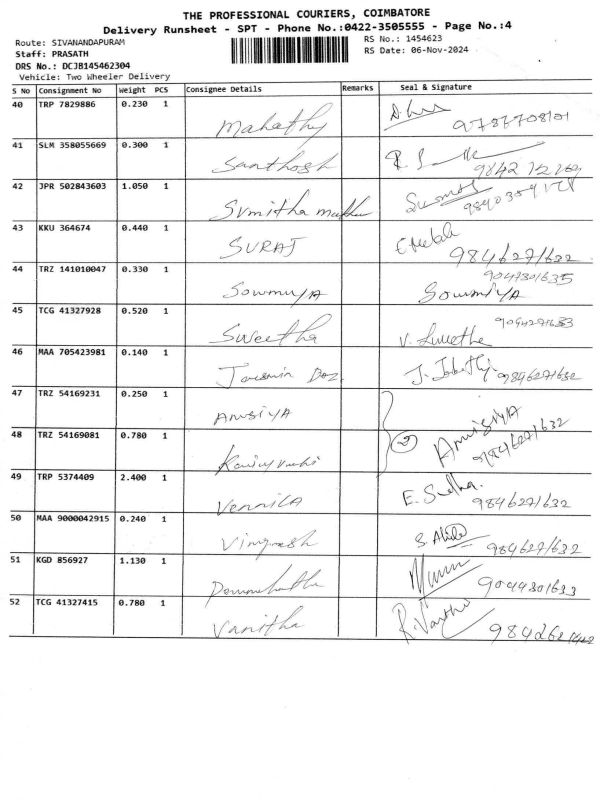 THE PROFESSIONAL COURIERS, COIMBATORE
Delivery Runsheet - SPT - Phone No.:0422-3505555 - Page No.:4
Route: SIVANANDAPURAM
RS No.: 1454623
Staff: PRASATH
RS Date: 06-Nov-2024
DRS No.: DCJB145462304
Vehicle: Two Wheeler Delivery
S No Consignment No Weight PCS Consignee Details Remarks Seal & Signature
40 TRP 7829886 0.230 1 Mahathy
41 SLM 358055669 0.300 1 Santhosh
42 JPR 502843603 1.050 1 Sumitha
43 KKU 364674 0.440 1 SURAJ 9846271632
44 TRZ 141010047 0.330 1 Sowmiya Sowmiya 9047301635
45 TCG 41327928 0.520 1 Swetha V. Swetha
46 MAA 705423981 0.140 1 9846271632
47 TRZ 54169231 0.250 1 ANUSIYA Anusiya 9846271632
48 TRZ 54169081 0.780 1 2
49 TRP 5374409 2.400 1 VENNILA E. Sudha. 9846271632
50 MAA 9000042915 0.240 1 Vignesh 9846271632
51 KGD 856927 1.130 1
52 TCG 41327415 0.780 1 Vanitha R. Vanitha